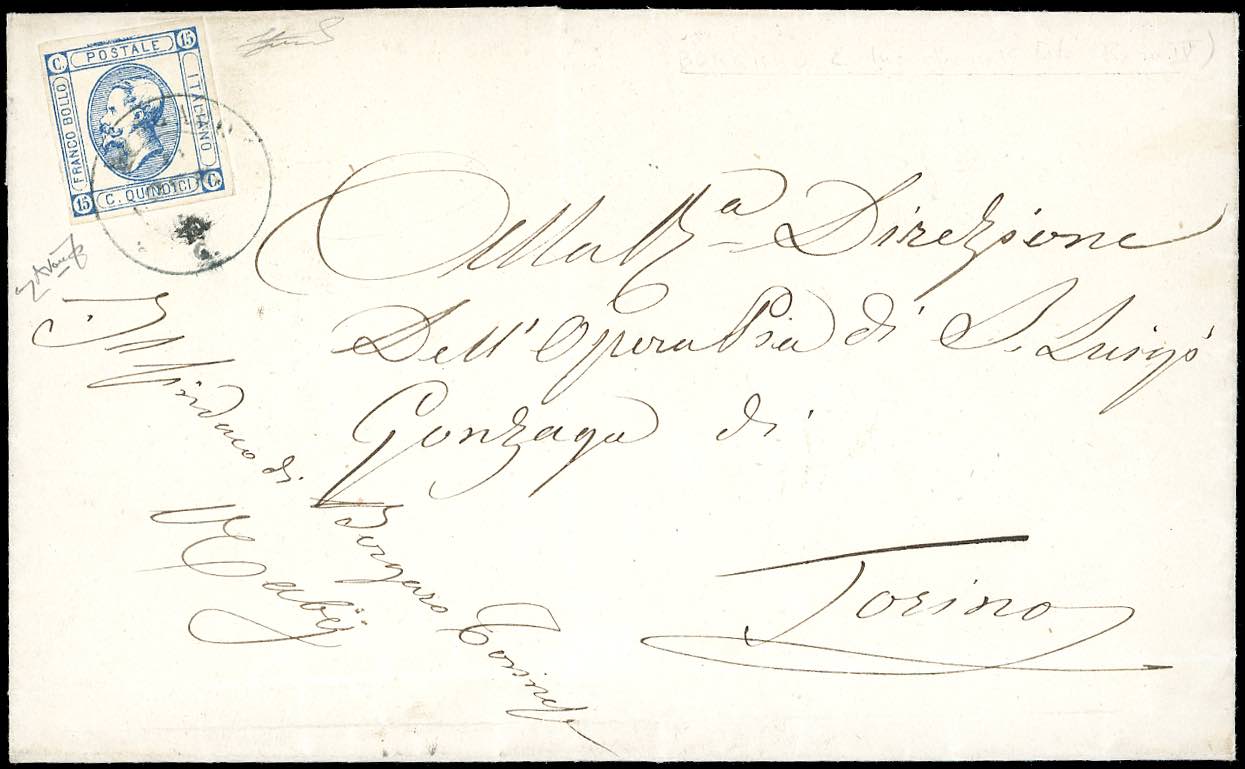 C. POSTALE 15
FRANCO BOLLO
ITALIANO
15 C. QUINDICI C.
Alla Direzione
Dell'Opera Pia di S. Luigi
Gonzaga di
Torino
Il Sindaco di Borgaro Torinese